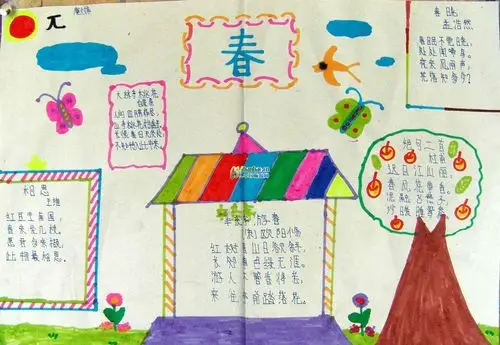 π
春
春晓
孟浩然
春眠不觉晓,
处处闻啼鸟。
夜来风雨声,
花落知多少?
大林寺桃花
白居易
人间四月芳菲尽,
山寺桃花始盛开。
长恨春归无觅处,
不知转入此中来。
绝句二首
杜甫
迟日江山丽,
春风花草香。
泥融飞燕子,
沙暖睡鸳鸯。
相思
王维
红豆生南国,
春来发几枝。
愿君多采撷,
此物最相思。
丰乐亭游春
欧阳修
红树青山日欲斜,
长郊草色绿无涯。
游人不管春将老,
来往亭前踏落花。